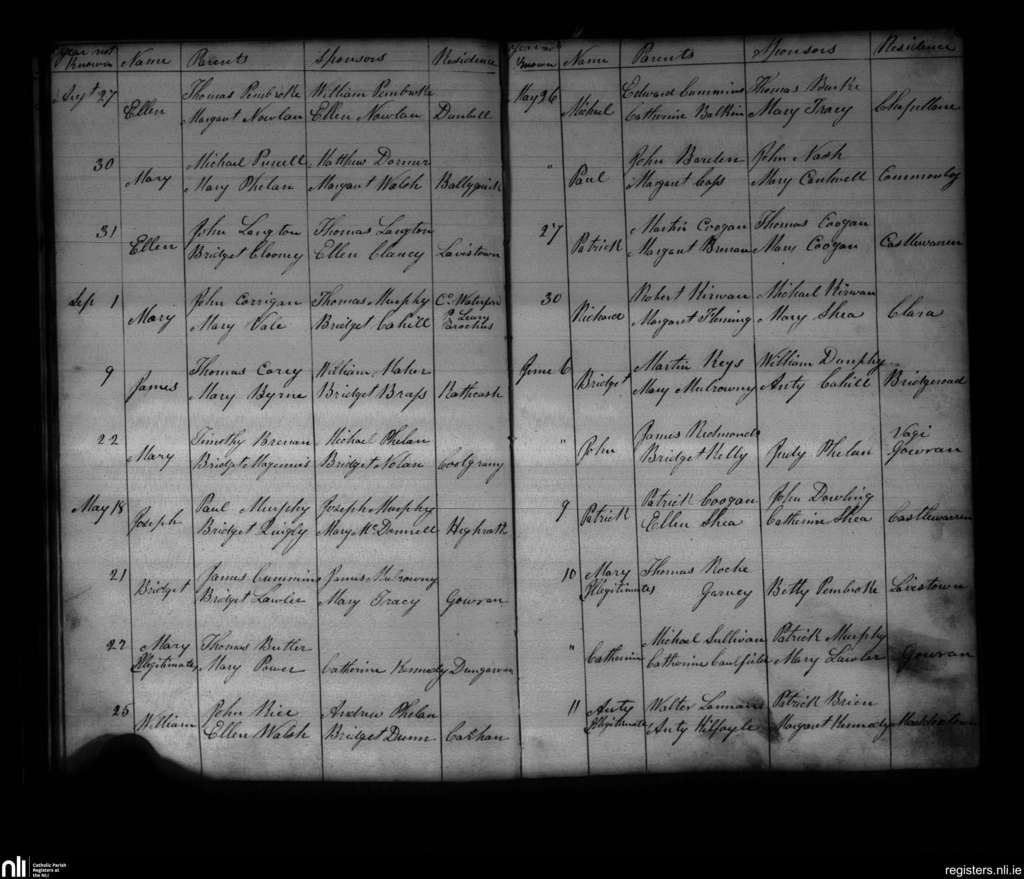 Year not Known Name Parents Sponsors Residence
Augt 27 Ellen Thomas Pembroke William Pembroke
Margaret Nowlan Ellen Nowlan Dunbell
30 Mary Michael Purcell Matthew Dormer
Mary Phelan Margaret Walsh
31 Ellen John Langton Thomas Langton
Bridget Clooney Ellen Clancy Lavistown
Sep 1 Mary John Corrigan Thomas Murphy Co. Waterford
Mary Vale Bridget Cahill P. Leary Parochus
9 James Thomas Corey William Maher
Mary Byrne Bridget Brass Rathcash
22 Mary Timothy Brenan Michael Phelan
Bridget Magennis Bridget Nolan Coolgrany
May 18 Joseph Paul Murphy Joseph Murphy
Bridget Quigly Mary McDonnell Highrath
21 Bridget James Cummins James Mulrowny
Bridget Lawler Mary Tracy Gowran
22 Mary Thomas Butler
Illegitimates Mary Power Catherine Kennedy Dungarvan
25 William John Rice Andrew Phelan
Ellen Walsh Bridget Dunn Cathan
Year not Known Name Parents Sponsors Residence
May 26 Michael Edward Cummins Thomas Burke
Catherine Balkin Mary Tracy Chapellane
" Paul John Barden John Nash
Margaret Cass Mary Cantwell Commonboy
27 Patrick Martin Coogan Thomas Coogan
Margaret Brenan Mary Coogan Castlewarren
30 Richard Robert Kirwan Michael Kirwan
Margaret Fleming Mary Shea Clara
June 6 Bridget Martin Keys William Dunphy
Mary Mulrowny Anty Cahill Bridgeroad
" John James Redmonds Vagi
Bridget Kelly Judy Phelan Gowran
9 Patrick Patrick Coogan John Dowling
Ellen Shea Catherine Shea Castlewarren
10 Mary Thomas Roche
Illegitimates Garvey Betty Pembroke Lavistown
" Catherine Michael Sullivan Patrick Murphy
Catherine Caulfield Mary Lawler Gowran
11 Anty Walter Patrick Brien
Illegitimates Anty Kilfoyle Margaret Kennedy
nli Catholic Parish
Registers at
the NLI
registers.nli.ie